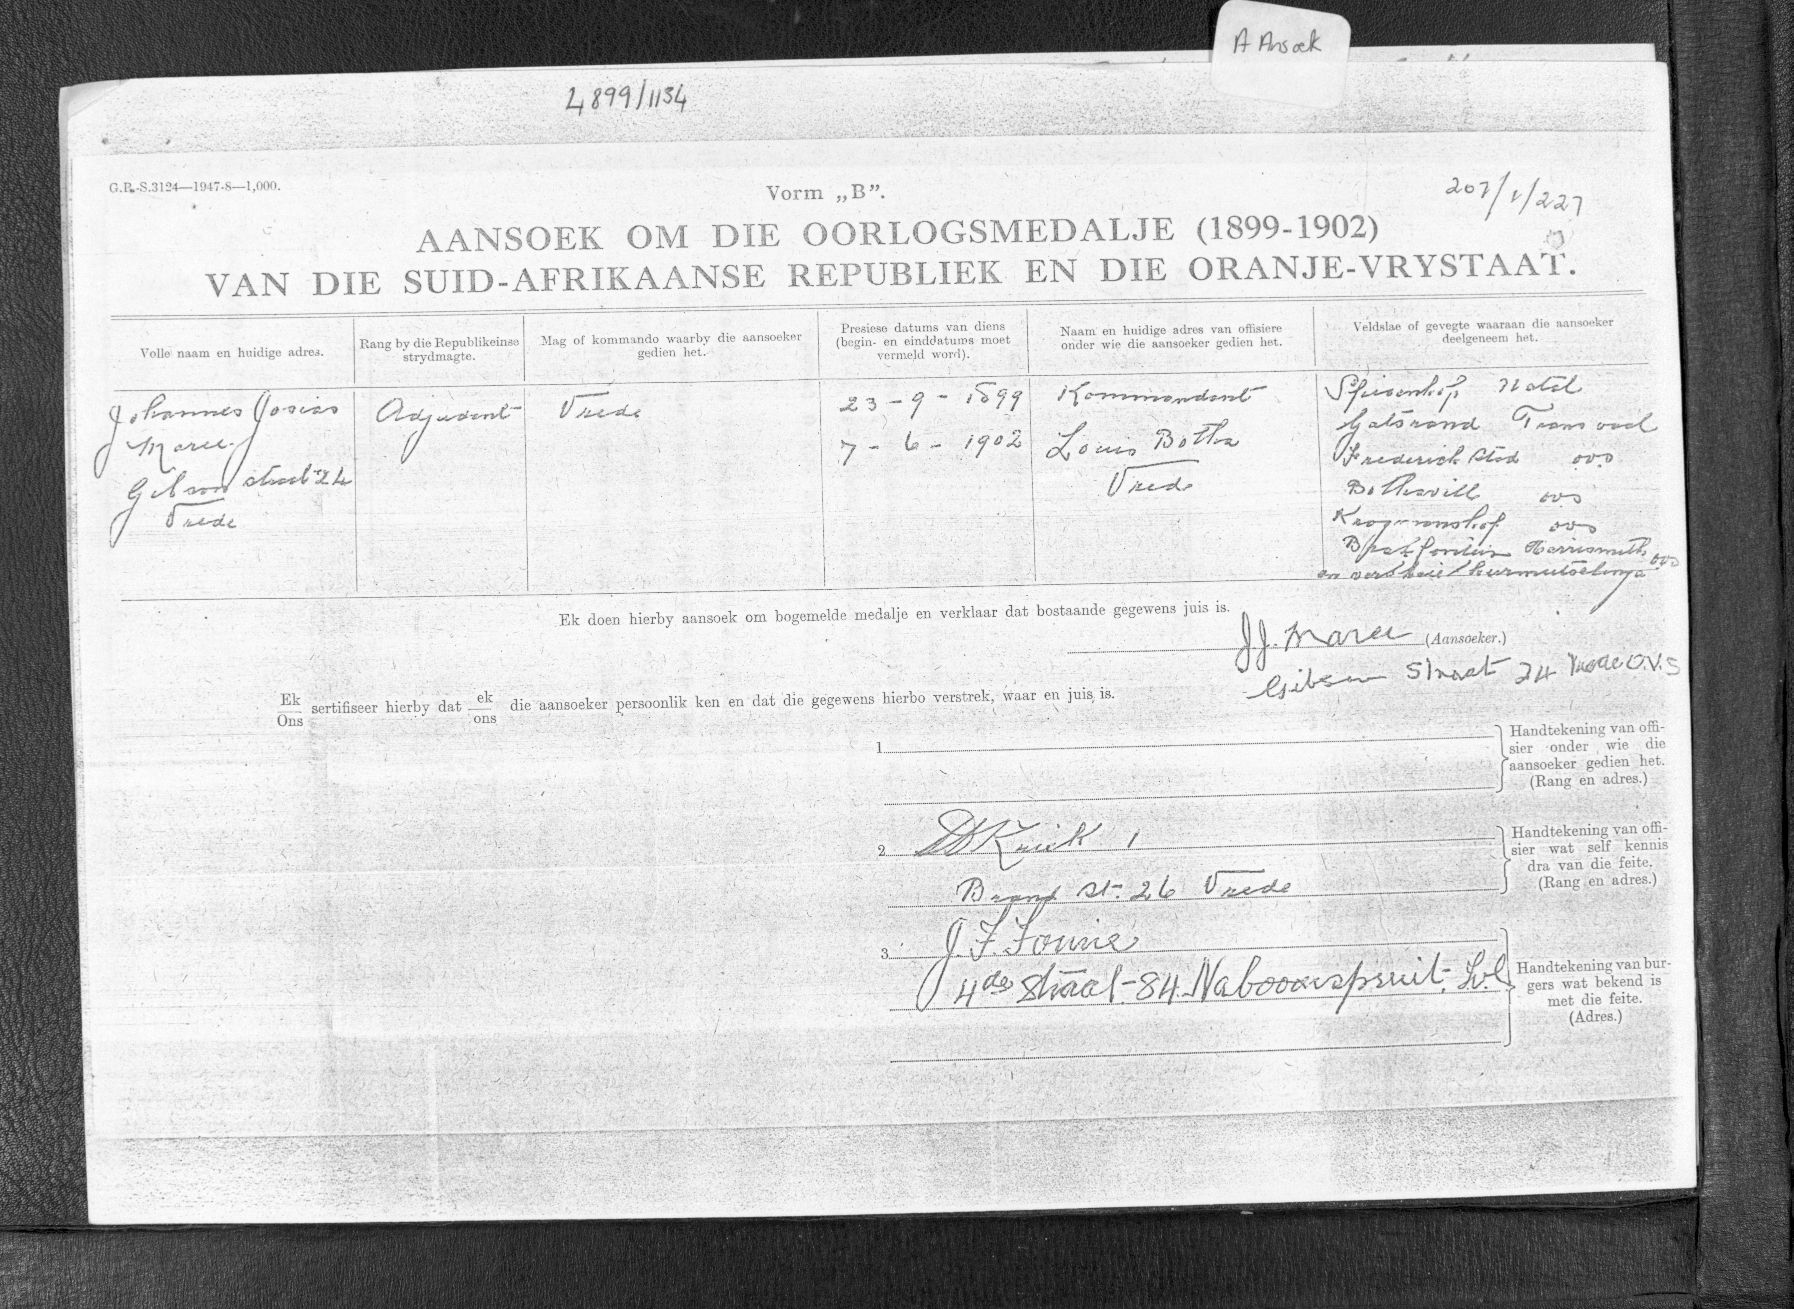 A Ansoek
4899/1134
G.P.-S.3124—1947-8—1,000.
Vorm „B”.
207/1/227
AANSOEK OM DIE OORLOGSMEDALJE (1899-1902)
VAN DIE SUID-AFRIKAANSE REPUBLIEK EN DIE ORANJE-VRYSTAAT.
Volle naam en huidige adres.
Rang by die Republikeinse
strydmagte.
Mag of kommando waarby die aansoeker
gedien het.
Presiese datums van diens
(begin- en einddatums moet
vermeld word).
Naam en huidige adres van offisiere
onder wie die aansoeker gedien het.
Veldslae of gevegte waaraan die aansoeker
deelgeneem het.
Johannes Josias
Maree
Gibson straat 24
Vrede
Adjudant
Vrede
23 - 9 - 1899
7 - 6 - 1902
Kommandant
Louis Botha
Vrede
Natal
Gatsrand Transvaal
Frederick stad ovs
Bothaville ovs
ovs
Harrismith ovs
en
Ek doen hierby aansoek om bogemelde medalje en verklaar dat bostaande gegewens juis is.
J.J. Maree (Aansoeker.)
Gibson Straat 24 Vrede O.V.S
Ek
Ons sertifiseer hierby dat ek
ons die aansoeker persoonlik ken en dat die gegewens hierbo verstrek, waar en juis is.
1
Handtekening van offi-
sier onder wie die
aansoeker gedien het.
(Rang en adres.)
2
Brand St. 26 Vrede
Handtekening van offi-
sier wat self kennis
dra van die feite.
(Rang en adres.)
3. J. F. Fourie
4de Straat - 84 Naboomspruit.
Handtekening van bur-
gers wat bekend is
met die feite.
(Adres.)